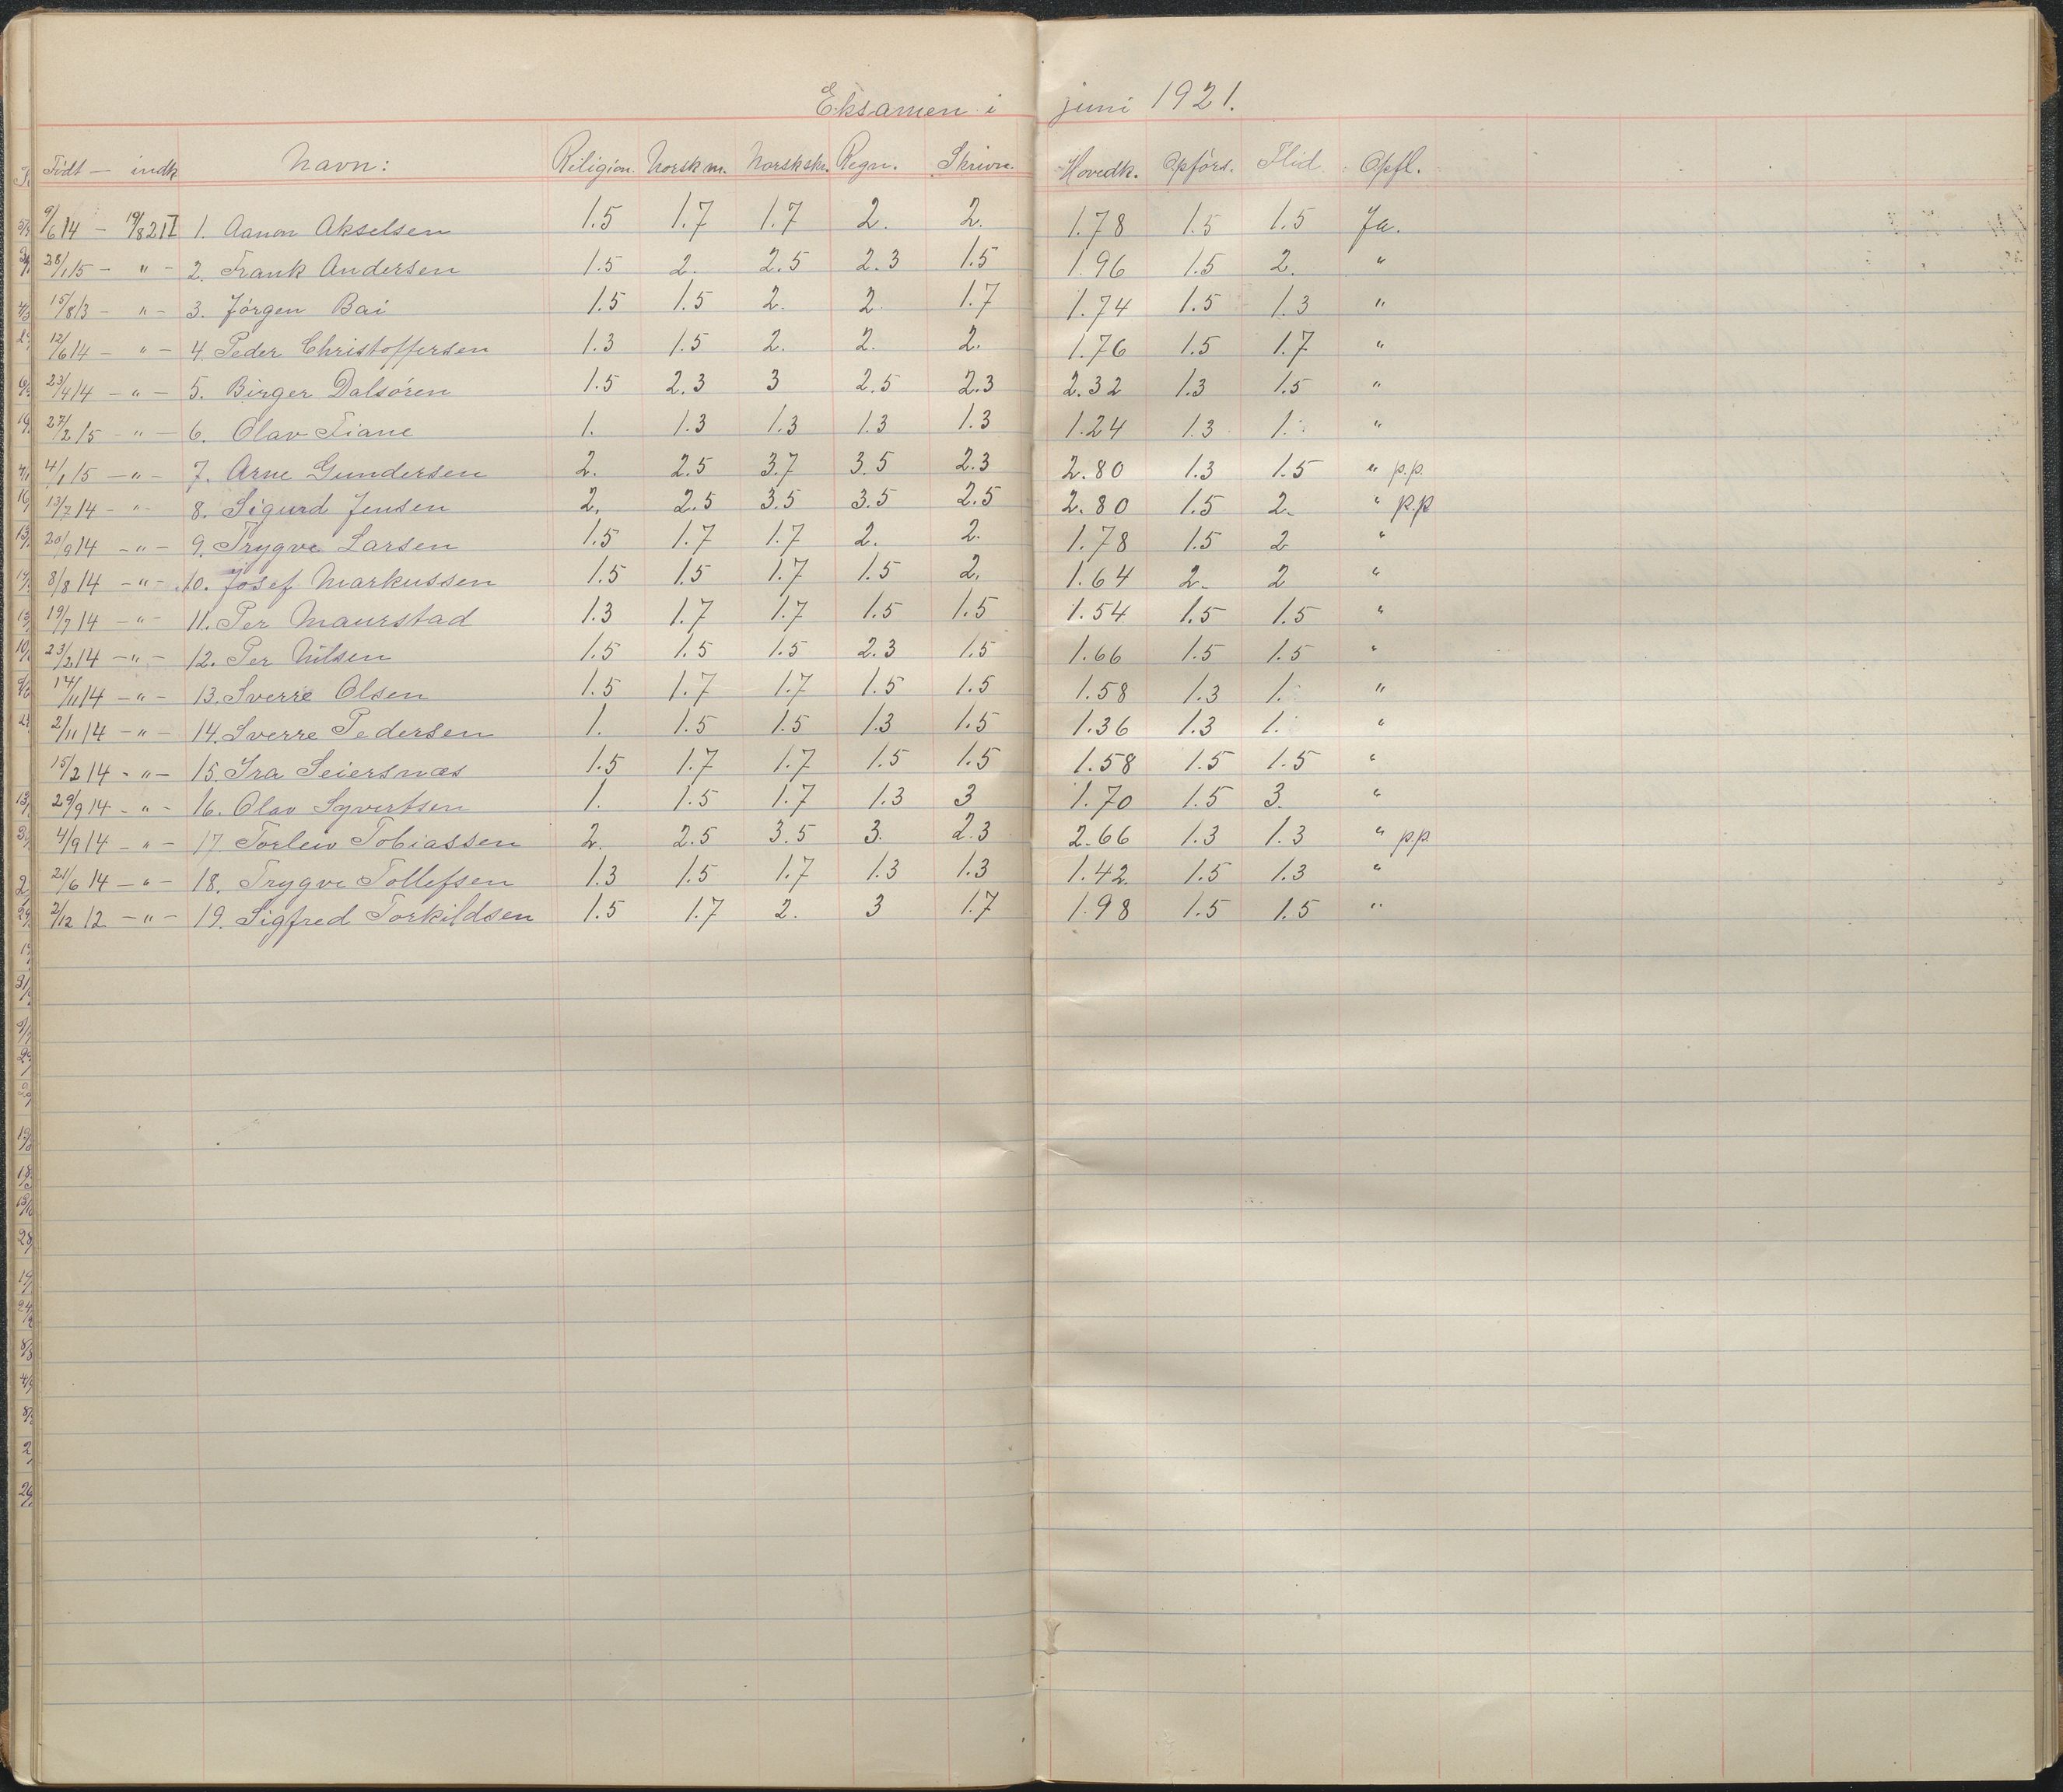 Eksamen i juni 1921.
Födt — indk Navn: Religion. Norsk m. Norsk skr. Regn. Skrivn. Hovedk. Opförs. Flid Opfl.
9/6 14 - 19/8 21 I 1. Aanon Akselsen 1.5 1.7 1.7 2. 2. 1.78 1.5 1.5 Ja.
28/1 15 - " - 2. Frank Andersen 1.5 2. 2.5 2.3 1.5 1.96 1.5 2. "
15/8 13 - " - 3. Jörgen Bai 1.5 1.5 2. 2. 1.7 1.74 1.5 1.3 "
12/6 14 - " - 4. Peder Christoffersen 1.3 1.5 2. 2. 2. 1.76 1.5 1.7 "
23/4 14 - " - 5. Birger Dalsören 1.5 2.3 3 2.5 2.3 2.32 1.3 1.5 "
27/2 15 - " - 6. Olav Fiane 1. 1.3 1.3 1.3 1.3 1.24 1.3 1. "
4/1 15 - " - 7. Arne Gundersen 2. 2.5 3.7 3.5 2.3 2.80 1.3 1.5 " p.p.
13/7 14 - " - 8. Sigurd Jensen 2. 2.5 3.5 3.5 2.5 2.80 1.5 2. " p.p
20/9 14 - " - 9. Trygve Larsen 1.5 1.7 1.7 2. 2. 1.78 1.5 2 "
8/8 14 - " - 10. Josef Markussen 1.5 1.5 1.7 1.5 2. 1.64 2. 2 "
19/7 14 - " - 11. Per Maurstad 1.3 1.7 1.7 1.5 1.5 1.54 1.5 1.5 "
23/2 14 - " - 12. Per Nilsen 1.5 1.5 1.5 2.3 1.5 1.66 1.5 1.5 "
14/11 14 - " - 13. Sverre Olsen 1.5 1.7 1.7 1.5 1.5 1.58 1.3 1. "
2/11 14 - " - 14. Sverre Pedersen 1. 1.5 1.5 1.3 1.5 1.36 1.3 1. "
15/2 14 - " - 15. Ira Seiersnæs 1.5 1.7 1.7 1.5 1.5 1.58 1.5 1.5 "
29/9 14 - " - 16. Olav Syvertsen 1. 1.5 1.7 1.3 3 1.70 1.5 3. "
4/9 14 - " - 17. Torleiv Tobiassen 2. 2.5 3.5 3. 2.3 2.66 1.3 1.3 " p.p.
21/6 14 - " - 18. Trygve Tollefsen 1.3 1.5 1.7 1.3 1.3 1.42. 1.5 1.3 "
2/12 12 - " - 19. Sigfred Torkildsen 1.5 1.7 2. 3 1.7 1.98 1.5 1.5 "